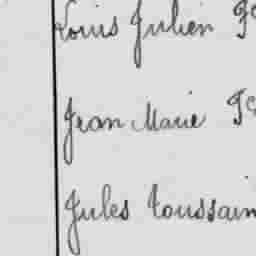 Louis Julien Fç
Jean Marie Fç
Jules Toussain